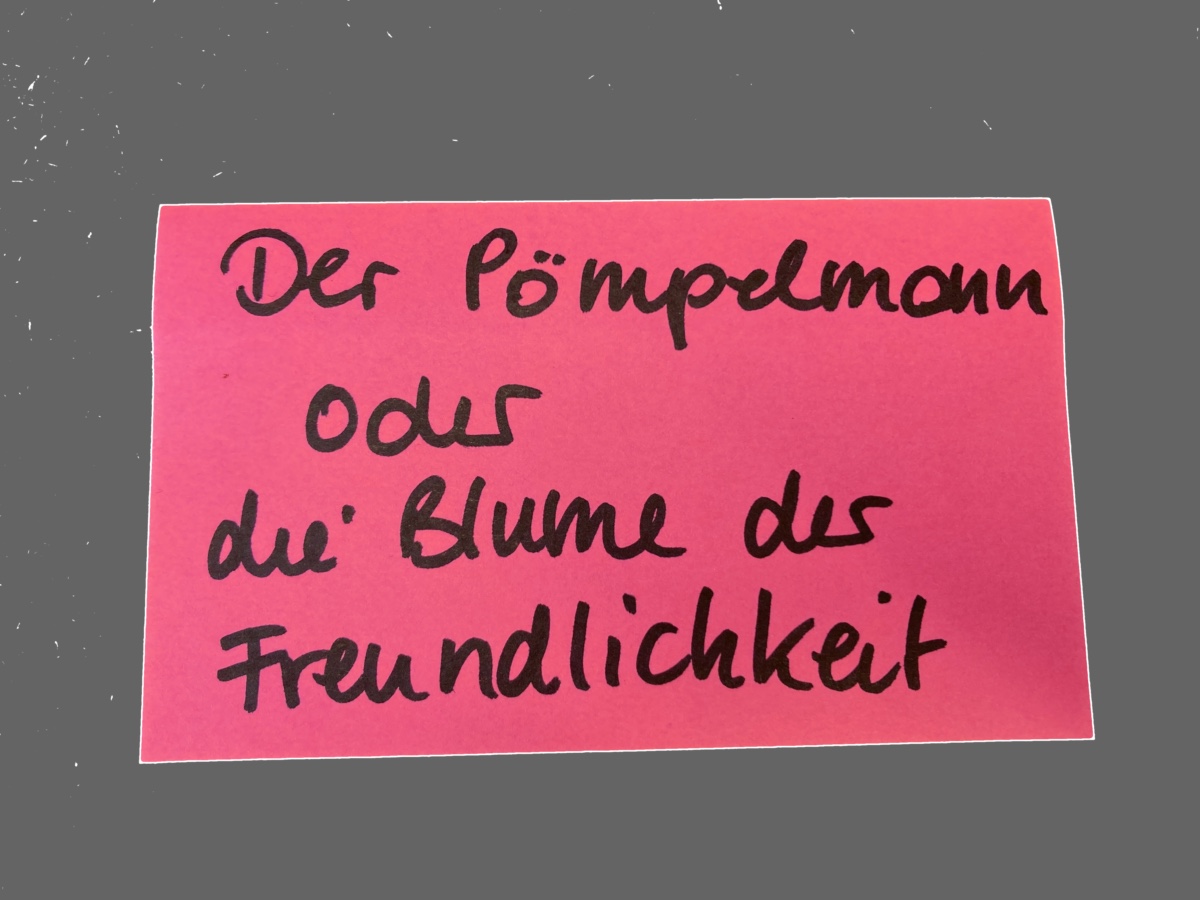 Der Pömpelmann
Oder
die Blume der
Freundlichkeit